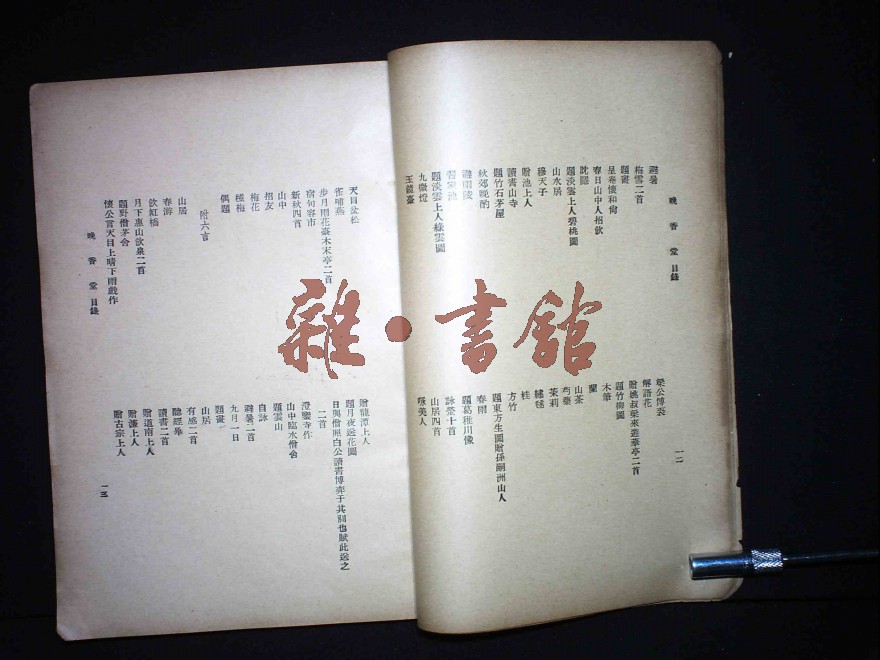 晚香堂目錄
避暑
梅雪二首
題畫
呈卷懷和尙
春日山中人招飲
沈園
題淡雲上人碧桃圖
山水居
穆天子
贈池上人
讀書山寺
題竹石茅屋
秋郊晚酌
題淡雲上人綠雲圖
九微燈
玉鏡臺
解語花
題竹柳圖
木筆
蘭
山茶
芍藥
茉莉
繡毬
桂
方竹
題東方生圖贈孫嗣洲山人
春雨
題葛稚川像
詠螢十首
山居四首
詠美人
一二
天目盆松
雀哺燕
步月雨花臺木末亭二首
宿句容市
新秋四首
山中
招友
梅花
種梅
偶題
附六言
山居
春游
飲虹橋
月下惠山飲泉二首
題野僧茅舍
懷公言天目上晴下雨戲作
晚香堂目錄
贈龍潭上人
題月夜送花圖
日與僧照白公讀書博弈于其別也賦此送之
二首
澄鑒寺作
山中臨水僧舍
題雲山
自詠
避暑二首
九月一日
題畫二首
山居
有感二首
聽經畢
讀書二首
贈道南上人
贈濂上人
贈古宗上人
一三
雜·書館